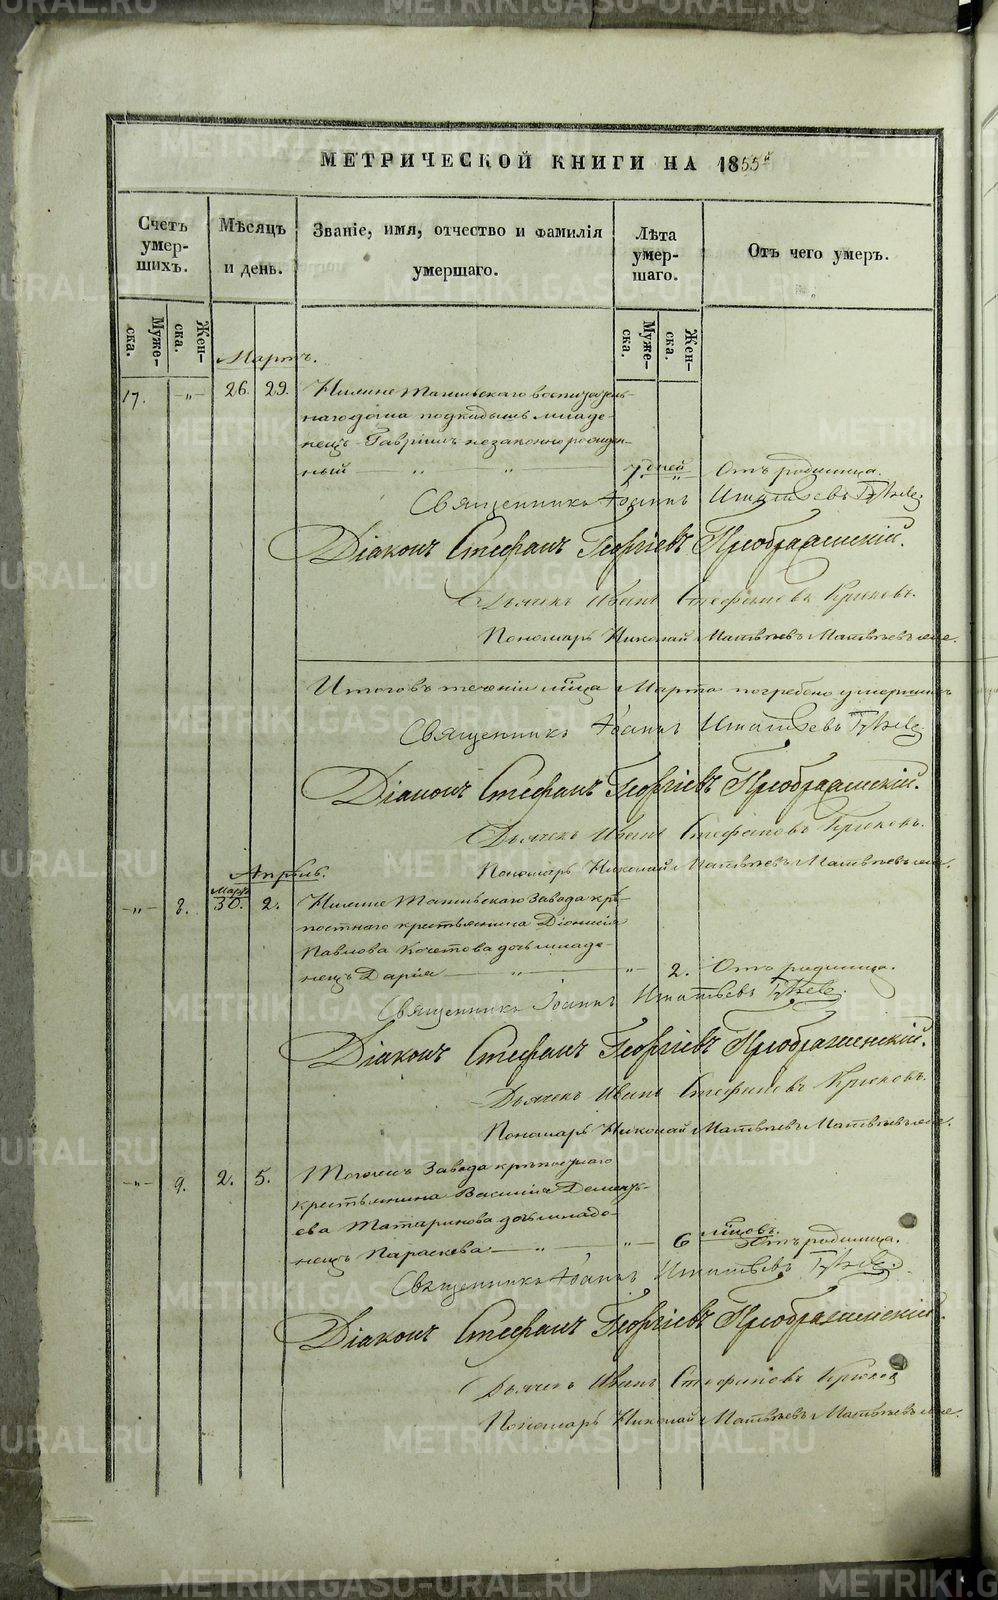 МЕТРИЧЕСКОЙ КНИГИ НА 1855й
Счетъ умер-шихъ.
Мѣсяцъ и день.
Званіе, имя, отчество и фамилія умершаго.
Лѣта умер-шаго.
Отъ чего умеръ.
Муже-ска.
Жен-ска.
Муже-ска.
Жен-ска.
Мартъ.
17. -„- 26. 29. Нижне Тагильскаго воспитатель-
наго дома подкидышъ младе-
нецъ Гавріилъ незаконнорожден-
ный „ „ 7. дней Отъ родимца.
Священникъ Іоаннъ Игнатьевъ
Діаконъ Стефанъ Георгіевъ Преображенскій.
Дьячекъ Иванъ Стефановъ Крюковъ.
Пономарь Николай Матвѣевъ Матвѣевъ
Итого въ теченіи мца Марта погребено умершихъ
Священникъ Іоаннъ Игнатьевъ
Діаконъ Стефанъ Георгіевъ Преображенскій.
Дьячекъ Иванъ Стефановъ Крюковъ.
Пономарь Николай Матвѣевъ Матвѣевъ
Апрѣль.
Марта
-„- 8. 30. 2. Нижне Тагильскаго Завода крѣ-
постнаго крестьянина Діонисія
Павлова Кочетова дочь младе-
нецъ Дарія „ -„- 2. Отъ родимца.
Священникъ Іоаннъ Игнатьевъ
Діаконъ Стефанъ Георгіевъ Преображенскій.
Дьячекъ Иванъ Стефановъ Крюковъ.
Пономарь Николай Матвѣевъ Матвѣевъ
-„- 9. 2. 5. Тогожъ Завода крѣпостнаго
крестьянина Василія Дементь-
ева Татаринова дочь младе-
нецъ Параскева „ -„- 6 мцовъ. Отъ родимца.
Священникъ Іоаннъ Игнатьевъ
Діаконъ Стефанъ Георгіевъ Преображенскій.
Дьячекъ Иванъ Стефановъ Крюковъ
Пономарь Николай Матвѣевъ Матвѣевъ
METRIKI.GASO-URAL.RU